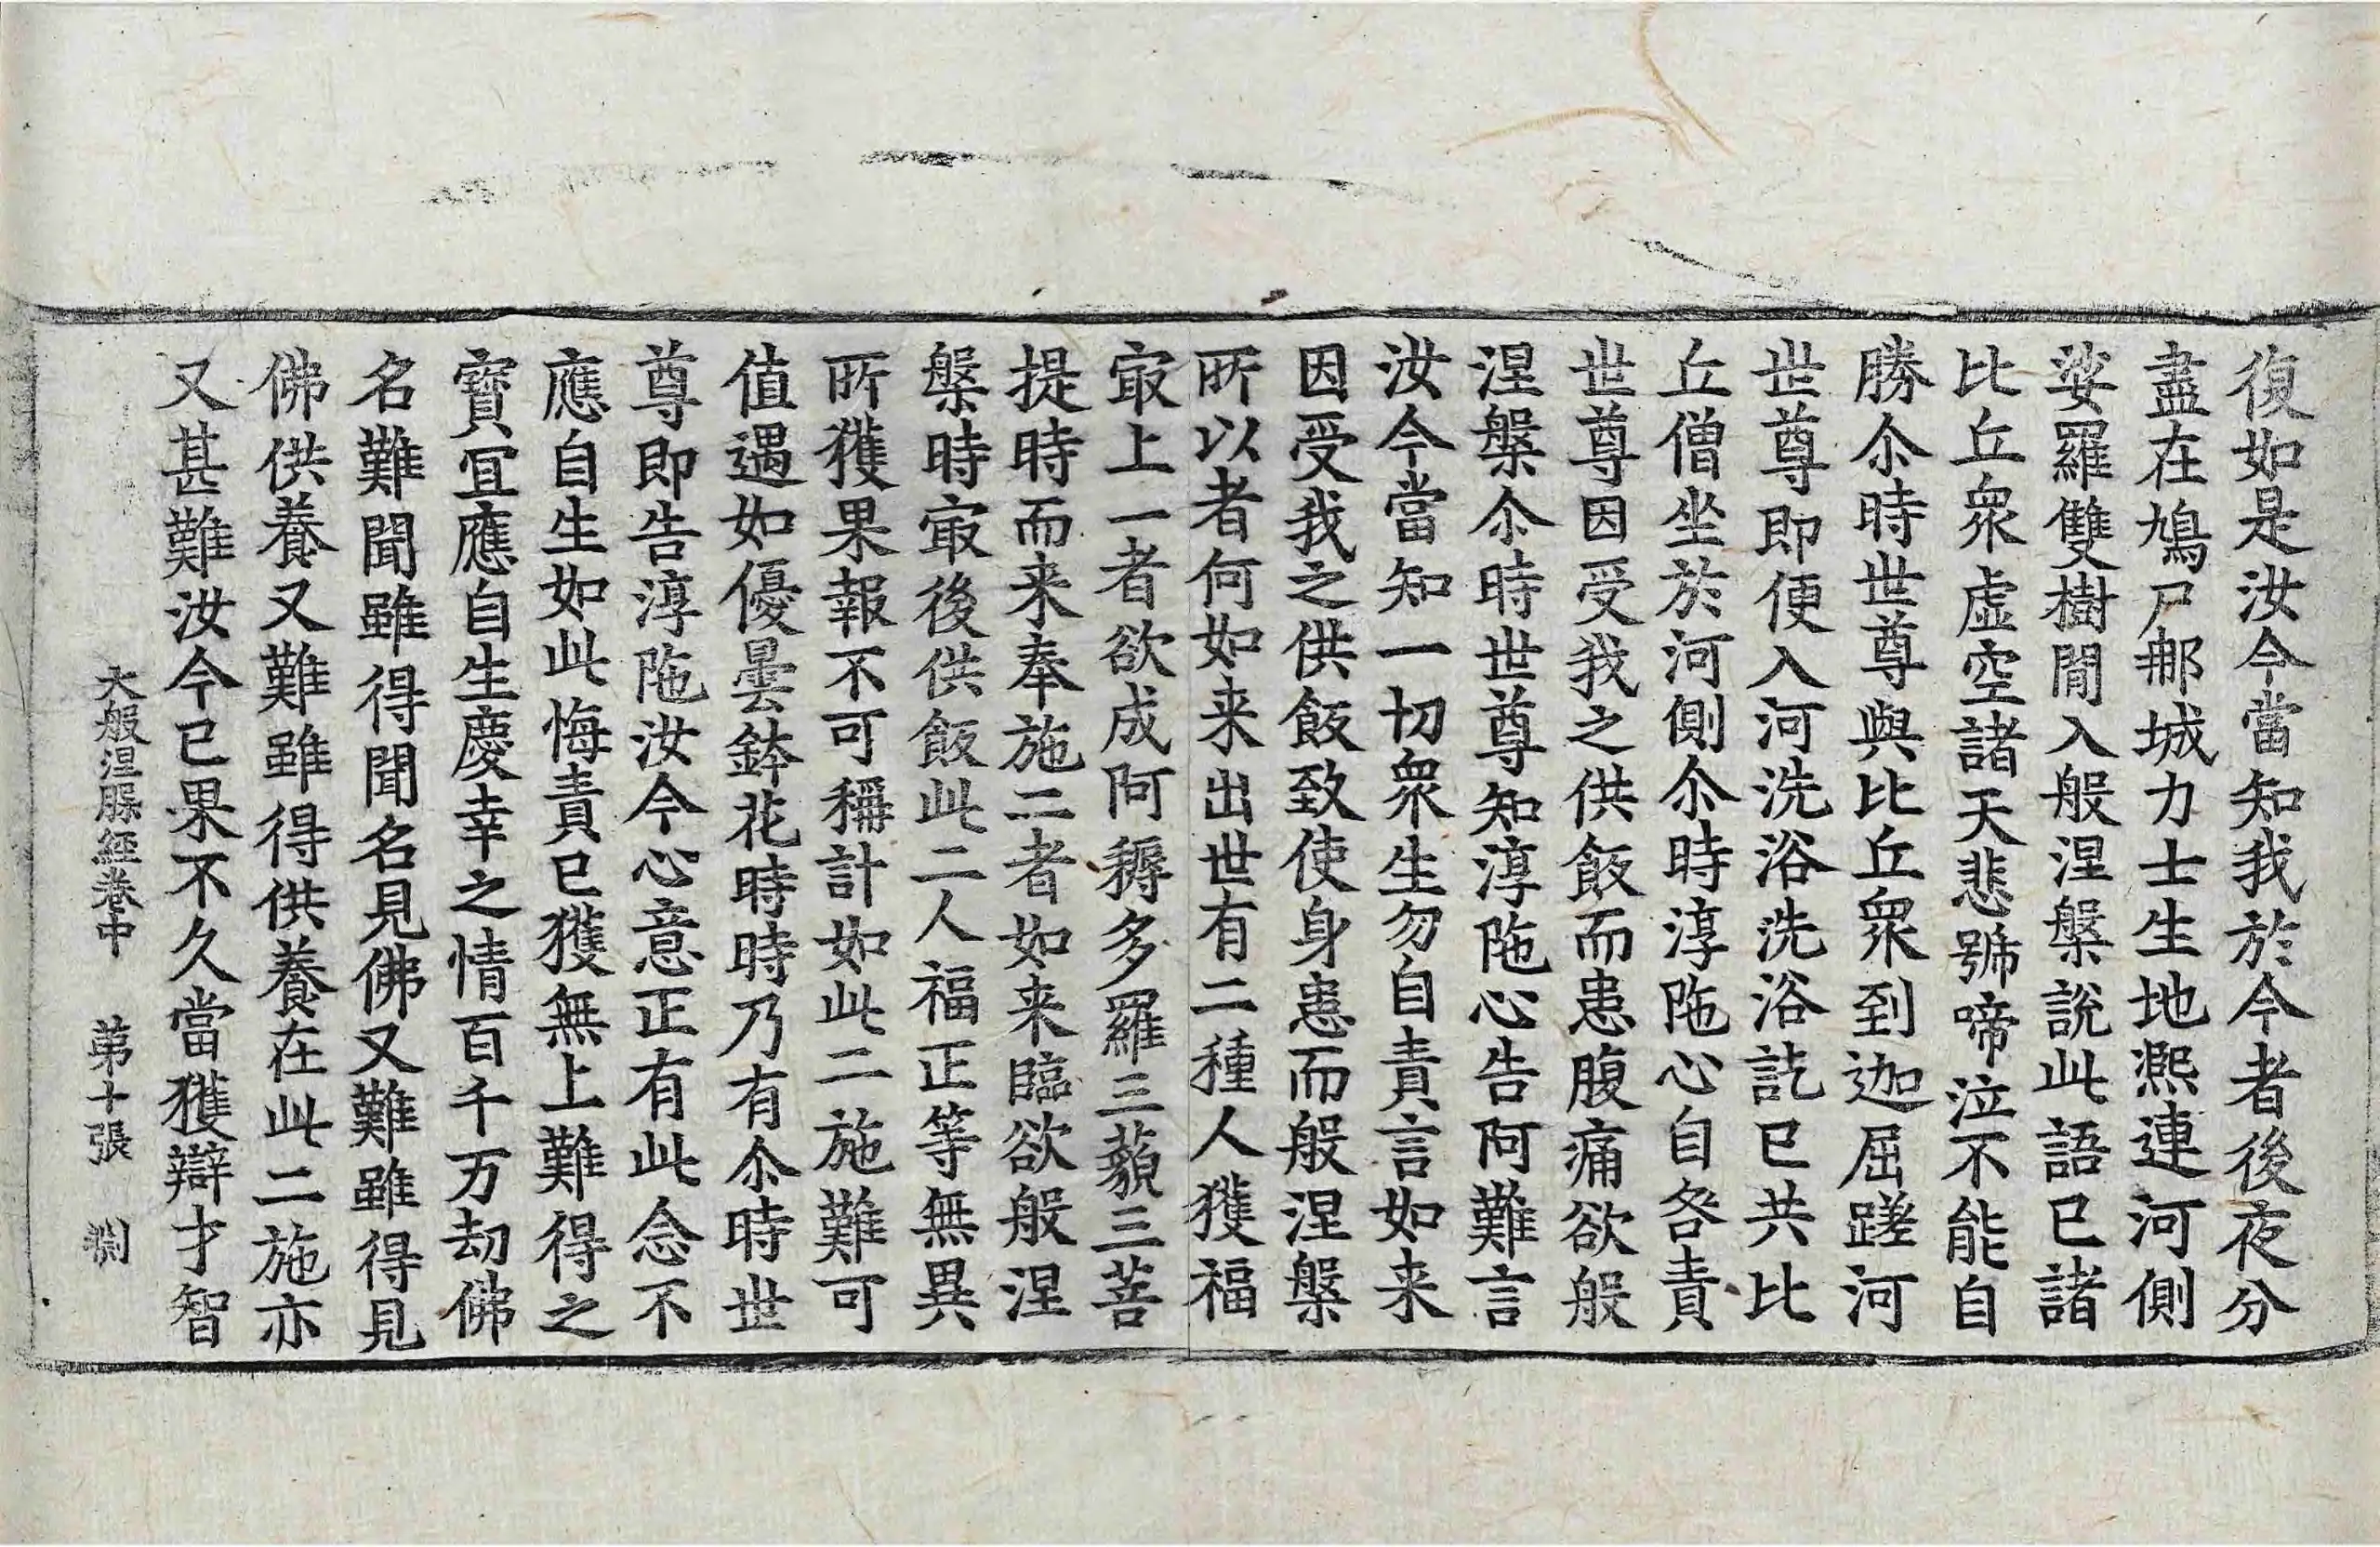 復如是汝今當知我於今者後夜分
盡在鳩尸郍城力士生地凞連河側
娑羅雙樹閒入般涅槃說此語已諸
比丘衆虛空諸天悲號啼泣不能自
勝尒時世尊與比丘衆到迦屈蹉河
世尊即便入河洗浴洗浴訖已共比
丘僧坐於河側尒時淳陁心自咎責
世尊因受我之供飯而患腹痛欲般
涅槃尒時世尊知淳陁心告阿難言
汝今當知一切衆生勿自責言如来
因受我之供飯致使身患而般涅槃
所以者何如来出世有二種人獲福
冣上一者欲成阿耨多羅三藐三菩
提時而来奉施二者如来臨欲般涅
槃時冣後供飯此二人福正等無異
所獲果報不可稱計如此二施難可
值遇如優曇鉢花時時乃有尒時世
尊即告淳陁汝今心意正有此念不
應自生如此悔責已獲無上難得之
寶冝應自生慶幸之情百千万劫佛
名難聞雖得聞名見佛又難雖得見
佛供養又難雖得供養在此二施亦
又甚難汝今已果不久當獲辯才智
大般涅槃經卷中 苐十張